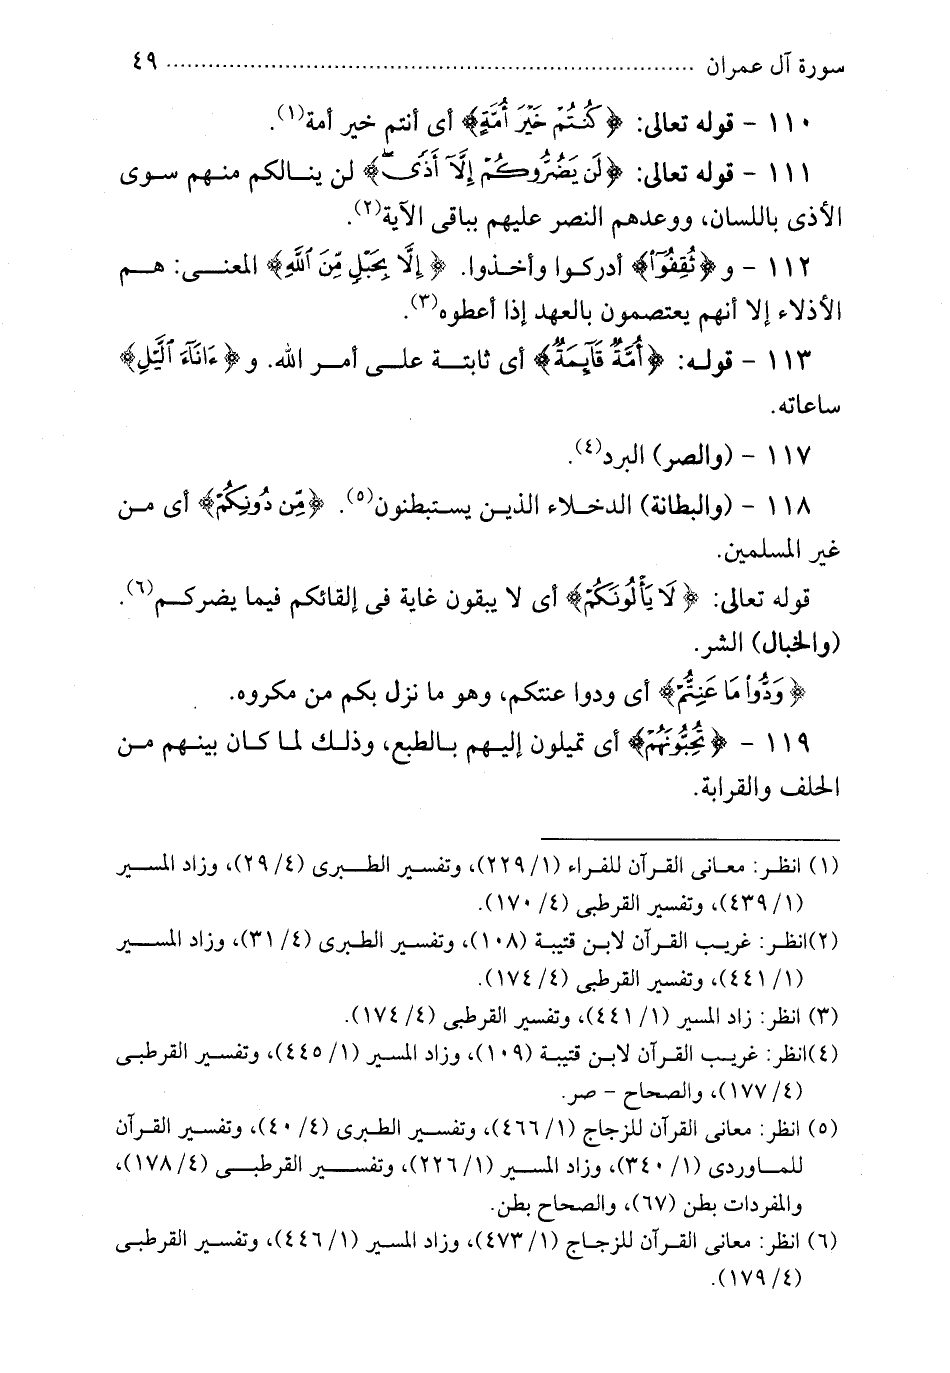 سورة آل عمران ................................................................ ٤٩
١١٠ - قوله تعالى: ﴿كُنتُمْ خَيْرَ أُمَّةٍ﴾ أى أنتم خير أمة(١).
١١١ - قوله تعالى: ﴿لَن يَضُرُّوكُمْ إِلَّآ أَذًى﴾ لن ينالكم منهم سوى
الأذى باللسان، ووعدهم النصر عليهم بباقى الآية(٢).
١١٢ - و﴿ثُقِفُوٓا۟﴾ أدركوا وأخذوا. ﴿إِلَّا بِحَبْلٍ مِّنَ ٱللَّهِ﴾ المعنى: هم
الأذلاء إلا أنهم يعتصمون بالعهد إذا أعطوه(٣).
١١٣ - قوله: ﴿أُمَّةٌ قَآئِمَةٌ﴾ أى ثابتة على أمر الله. و﴿ءَانَآءَ ٱلَّيْلِ﴾
ساعاته.
١١٧ - (والصر) البرد(٤).
١١٨ - (والبطانة) الدخلاء الذين يستبطنون(٥). ﴿مِّن دُونِكُمْ﴾ أى من
غير المسلمين.
قوله تعالى: ﴿لَا يَأْلُونَكُمْ﴾ أى لا يبقون غاية فى إلقائكم فيما يضركم(٦).
(والخبال) الشر.
﴿وَدُّوا۟ مَا عَنِتُّمْ﴾ أى ودوا عنتكم، وهو ما نزل بكم من مكروه.
١١٩ - ﴿تُحِبُّونَهُمْ﴾ أى تميلون إليهم بالطبع، وذلك لما كان بينهم من
الحلف والقرابة.
(١) انظر: معانى القرآن للفراء (١/ ٢٢٩)، وتفسير الطبرى (٤/ ٢٩)، وزاد المسير
(١/ ٤٣٩)، وتفسير القرطبى (٤/ ١٧٠).
(٢)انظر: غريب القرآن لابن قتيبة (١٠٨)، وتفسير الطبرى (٤/ ٣١)، وزاد المسير
(١/ ٤٤١)، وتفسير القرطبى (٤/ ١٧٤).
(٣) انظر: زاد المسير (١/ ٤٤١)، وتفسير القرطبى (٤/ ١٧٤).
(٤)انظر: غريب القرآن لابن قتيبة (١٠٩)، وزاد المسير (١/ ٤٤٥)، وتفسير القرطبى
(٤/ ١٧٧)، والصحاح - صر.
(٥) انظر: معانى القرآن للزجاج (١/ ٤٦٦)، وتفسير الطبرى (٤/ ٤٠)، وتفسير القرآن
للماوردى (١/ ٣٤٠)، وزاد المسير (١/ ٢٢٦)، وتفسير القرطبى (٤/ ١٧٨)،
والمفردات بطن (٦٧)، والصحاح بطن.
(٦) انظر: معانى القرآن للزجاج (١/ ٤٧٣)، وزاد المسير (١/ ٤٤٦)، وتفسير القرطبى
(٤/ ١٧٩).